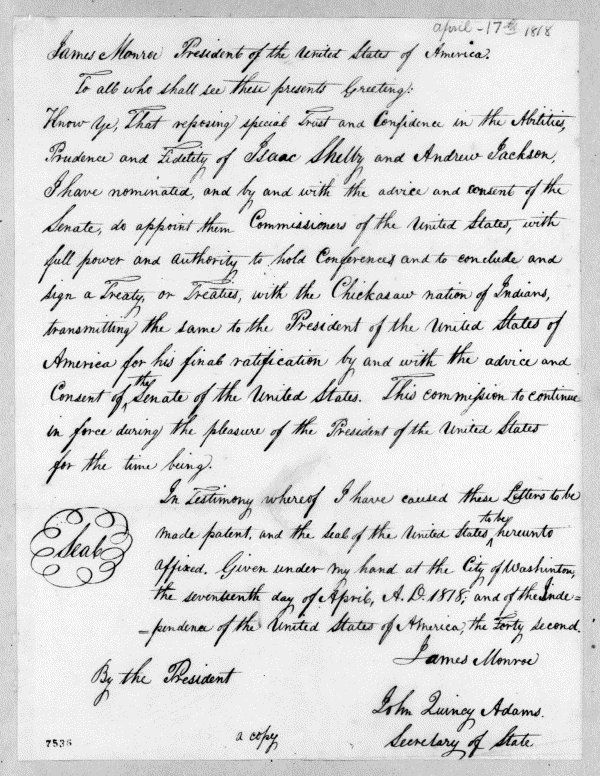 april - 17th 1818
James Monroe President of the United States of America.
To all who shall see these presents Greeting:
Know Ye, That reposing special Trust and Confidence in the Abilities,
Prudence and Fidelity of Isaac Shelby and Andrew Jackson,
I have nominated, and by and with the advice and consent of the
Senate, do appoint them Commissioners of the United States, with
full power and authority to hold Conferences and to conclude and
sign a Treaty, or Treaties, with the Chickasaw nation of Indians,
transmitting the same to the President of the United States of
America for his final ratification by and with the advice and
Consent of the Senate of the United States. This commission to continue
in force during the pleasure of the President of the United States
for the time being.
In Testimony whereof I have caused these Letters to be
made patent, and the seal of the United States to be hereunto
Seal
affixed. Given under my hand at the City of Washinton,
the seventeenth day of April, A.D. 1818; and of the Inde=
=pendence of the United States of America, the Forty second.
James Monroe
By the President
John Quincy Adams.
Secretary of State
a copy
7536